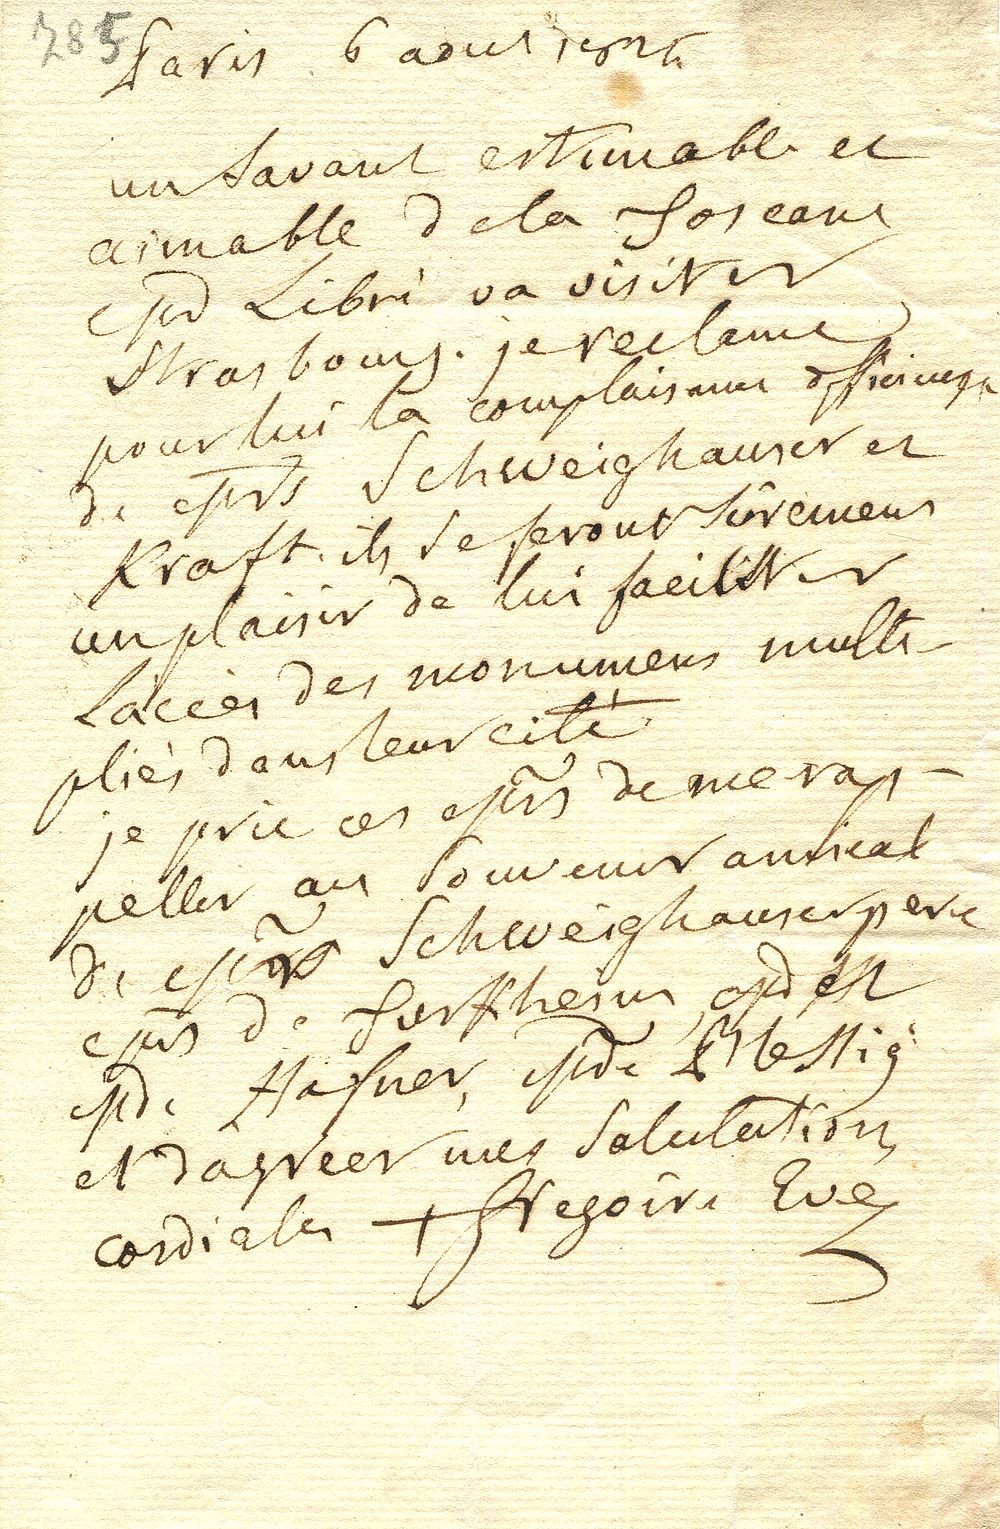 285
Paris 6 aout
un Savant estimable et
aimable de la Toscane
Libri va visiter
Strasbourg. je reclame
pour lui la complaisance officieuse
de Schweighauser et
Kraft. ils se feront sûrement
un plaisir de lui faciliter
L'accès des monumens multi-
pliés dans leur cité
je prie ces de me rap-
peller au Souvenir amical
de Schweighauser pere
de Turkheim
de Hafner, de Blessig
et d'agréer mes Salutations
cordiales + Gregoire Eve